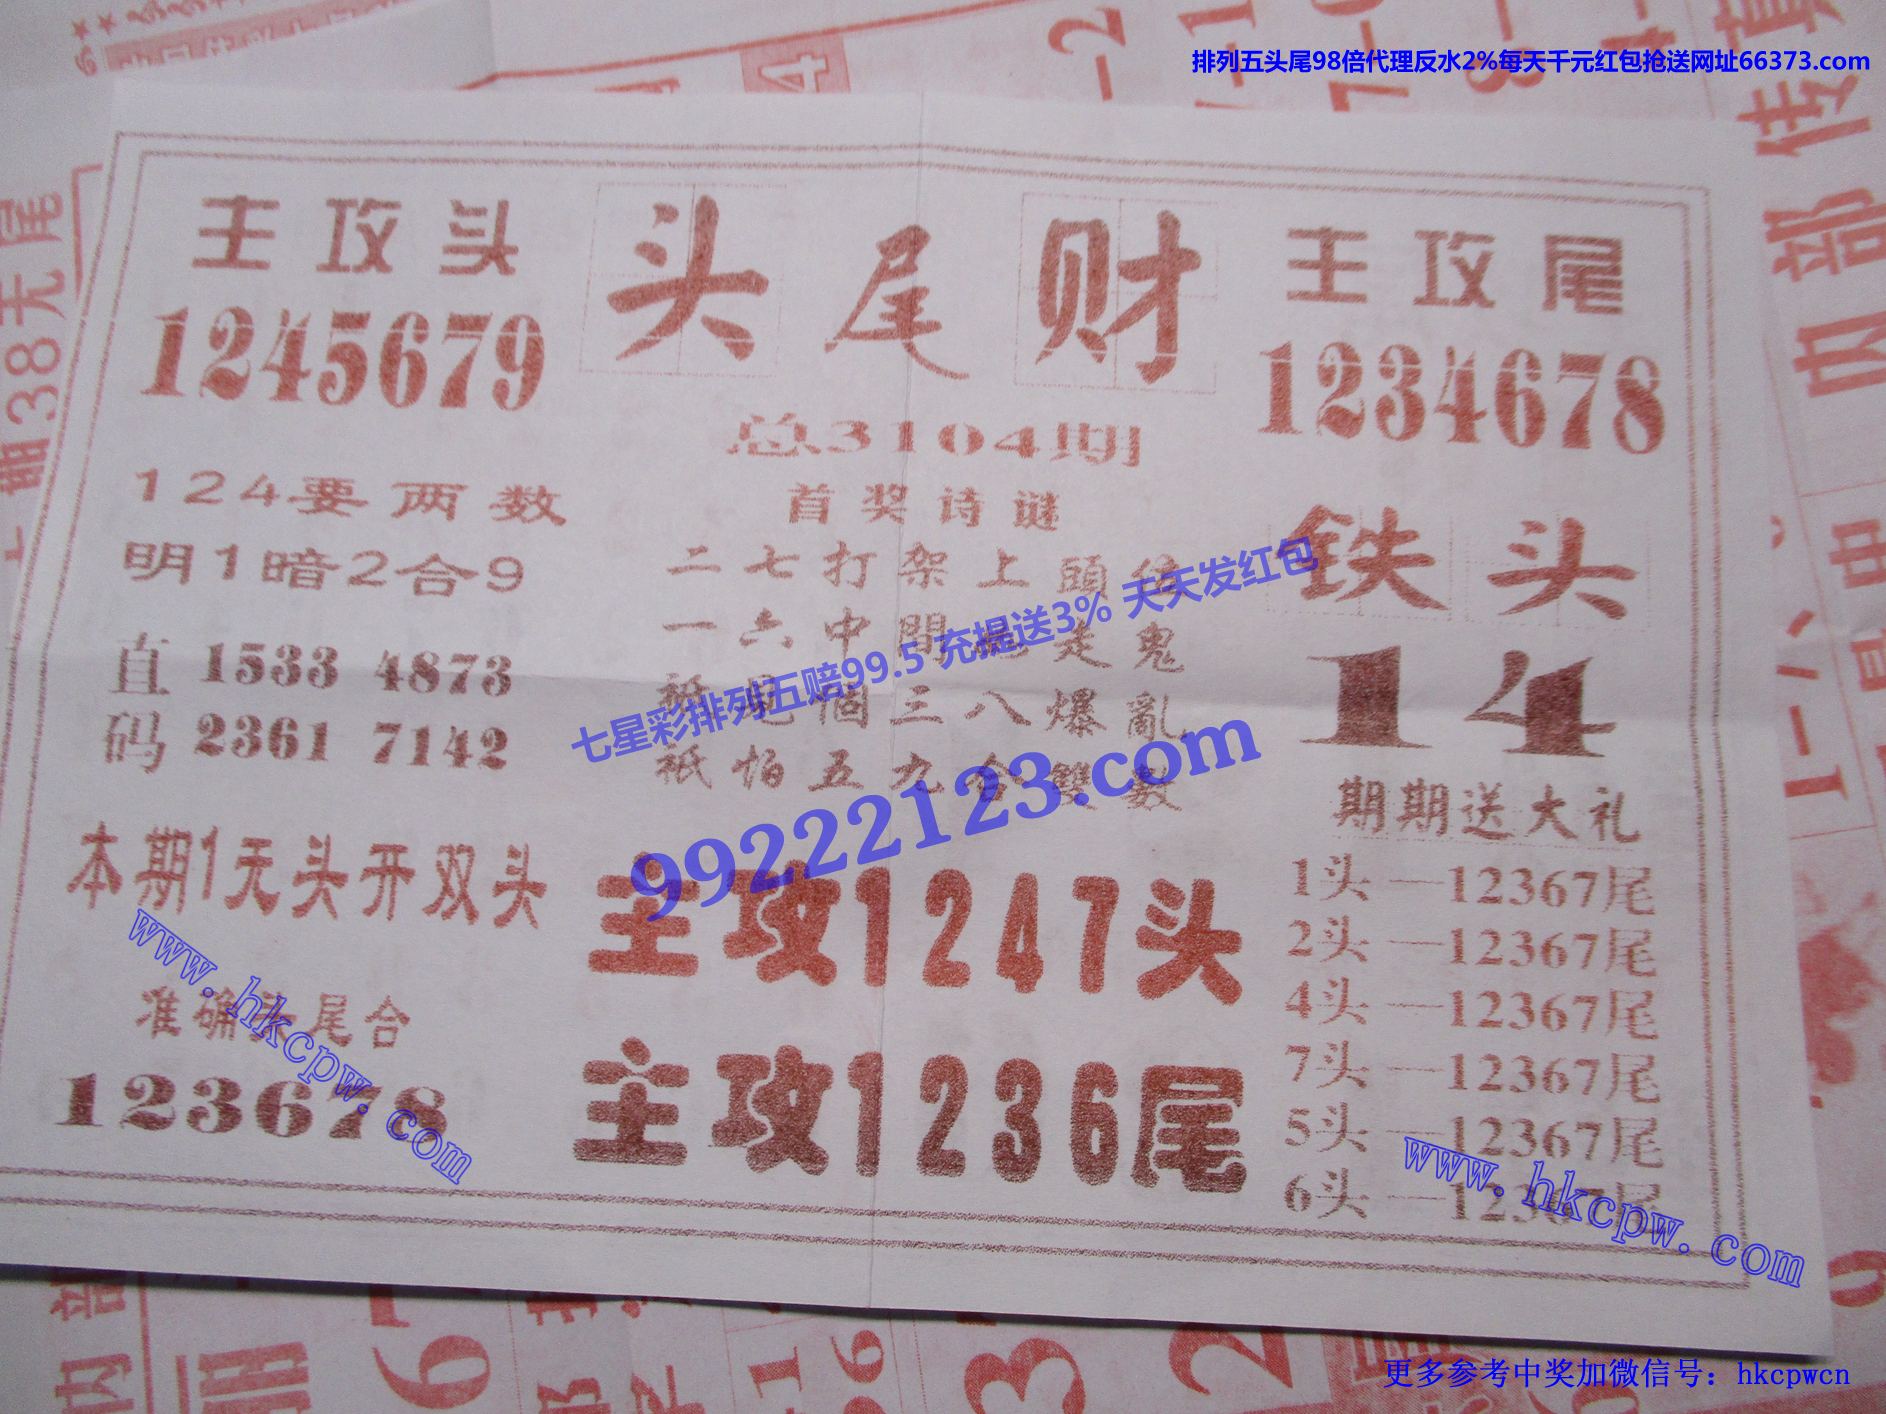 排列五头尾98倍代理反水2%每天千元红包抢送网址66373.com
主攻头
1245679
头尾财
主攻尾
1234678
总3104期
首奖诗谜
124要两数
明1暗2合9
二七打架上頭
一六中間 走鬼
個三八爆亂
祇怕五九合雙數
铁头
14
直码
1533 4873
2361 7142
七星彩排列五赔99.5 充提送3% 天天发红包
99222123.com
期期送大礼
本期1无头开双头
主攻1247头
主攻1236尾
准确头尾合
123678
1头—12367尾
2头—12367尾
4头—12367尾
7头—12367尾
5头—12367尾
6头—12367尾
www.hkcpw.com
www.hkcpw.com
38无尾
内部传真
更多参考中奖加微信号：hkcpwcn